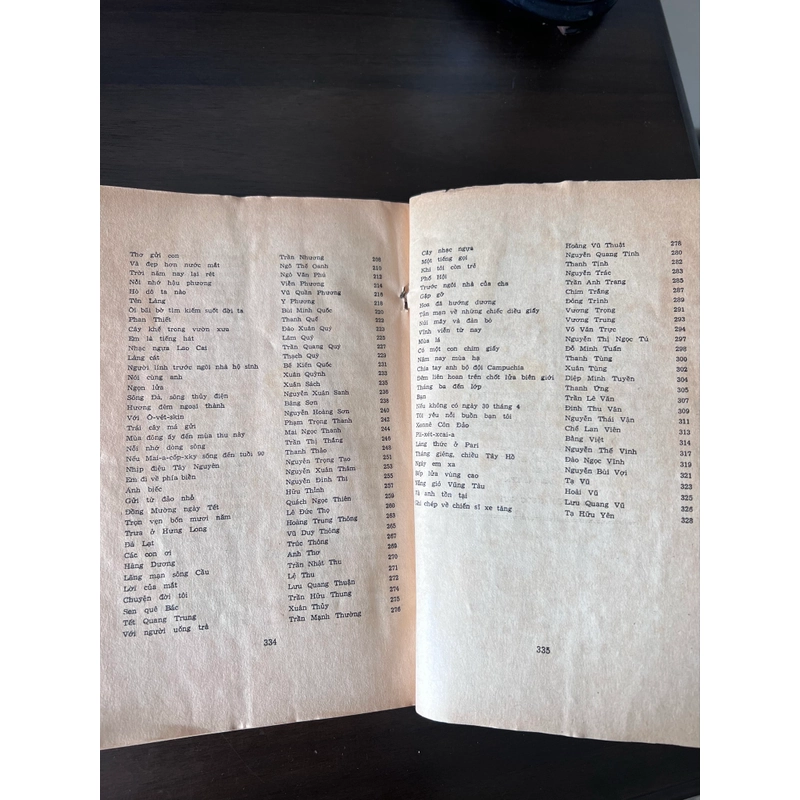 Thơ gửi con Trần Nhương 208
Và đẹp hơn nước mắt Ngô Thế Oanh 210
Trời năm nay lại rét Ngô Văn Phú 212
Nỗi nhớ hậu phương Viễn Phương 214
Hò dô ta nào Vũ Quần Phương 216
Tên Làng Y Phương 218
Ôi bãi bờ tìm kiếm suốt đời ta Bùi Minh Quốc 220
Phan Thiết Thanh Quế
Cây khế trong vườn xưa Đào Xuân Quý
Em là tiếng hát Lâm Quý
Nhạc ngựa Lao Cai Trần Quang Quý
Lăng cát Thạch Quỳ
Người lính trước ngôi nhà hộ sinh Bế Kiến Quốc
Nói cùng anh Xuân Quỳnh
Ngọn lửa Xuân Sách
Sông Đà, sông thủy điện Nguyễn Xuân Sanh
Hương đêm ngoại thành Băng Sơn
Với Ô-vét-skin Nguyễn Hoàng Sơn
Trái cây má gửi Phạm Trọng Thanh
Mùa đông ấy đến mùa thu này Mai Ngọc Thanh
Nỗi nhớ dòng sông Trần Thị Thắng
Nếu Mai-a-cốp-xky sống đến tuổi 90 Thanh Thảo
Nhịp điệu Tây Nguyên Nguyễn Trọng Tạo 251
Em đi về phía biển Nguyễn Xuân Thâm 253
Ánh biếc Nguyễn Đình Thi
Gửi từ đảo nhỏ Hữu Thỉnh
Đồng Mường ngày Tết Quách Ngọc Thiên
Trọn vẹn bốn mươi năm Lê Đức Thọ
Trưa ở Hưng Long Hoàng Trung Thông
Đà Lạt Vũ Duy Thông 265
Các con ơi Trúc Thông 267
Hàng Dương Anh Thơ
Lãng mạn sông Cầu Trần Nhật Thu 270
Lời của mắt Lệ Thu 271
Chuyện đời tôi Lưu Quang Thuận 272
Sen quê Bác Trần Hữu Thung 274
Tết Quang Trung Xuân Thủy 275
Với người uống trà Trần Mạnh Thường 276
334
Cây nhạc ngựa Hoàng Vũ Thuật 278
Một tiếng gọi Nguyễn Quang Tính 280
Khi tôi còn trẻ Thanh Tịnh 282
Phố Hội Nguyễn Trác 283
Trước ngôi nhà của cha Trần Anh Trang 285
Gặp gỡ Chim Trắng 287
Hoa đã hướng dương Đông Trình 289
Tản mạn về những chiếc diều giấy Vương Trọng 291
Núi mây và đàn bò Vương Trung 293
Vĩnh viễn từ nay Võ Văn Trực
Mùa lá Nguyễn Thị Ngọc Tú 297
Có một con chim giấy Đỗ Minh Tuấn 298
Năm nay mùa hạ Thanh Tùng 300
Chia tay anh bộ đội Campuchia Xuân Tùng 302
Đêm liên hoan trên chốt lửa biên giới Diệp Minh Tuyền 304
Tháng ba đến lớp Thanh Ứng 305
Bạn Trần Lê Văn 307
Nếu không có ngày 30 tháng 4 Đinh Thu Vân 309
Tôi yêu nỗi buồn bạn tôi Nguyễn Thái Vận 311
Xonnê Côn Đảo Chế Lan Viên 313
Pli-xét-xcai-a Bằng Việt 314
Làng thức ở Pari Nguyễn Thế Vinh 316
Tháng giêng, chiều Tây Hồ Đào Ngọc Vĩnh 318
Ngày em xa Nguyễn Bùi Vợi 320
Bếp lửa vùng cao Tạ Vũ 321
gió Vũng Tàu Hoài Vũ 323
Và anh tồn tại Lưu Quang Vũ 325
Ghi chép về chiến sĩ xe tăng Tạ Hữu Yên 328
335